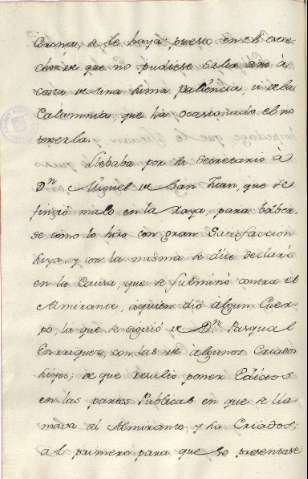 Corona, se le haya preso en el estre-
cho de que no pudiese salir sino a
costa de una suma paciencia, u de la
Calumnia que ha ocasionado el no
tenerla.
Llebaba por de Secretario à
Dn. Miguel de San Juan, que se
fingió malo en la Raya, para
se como lo hizo con gran Satisfaccion
suya, y con la misma se dice declaró
en la Causa, que se fulminó contra el
Almirante, a quien dió algun Cuer-
po, la que se siguió de Dn. Pasqual
Enrriquez, con las de algunos Criados
suyos; de que resultó poner Edictos
en las partes Publicas en que se lla-
mava al Almirante, y ha Criados;
al primero para que se presentase